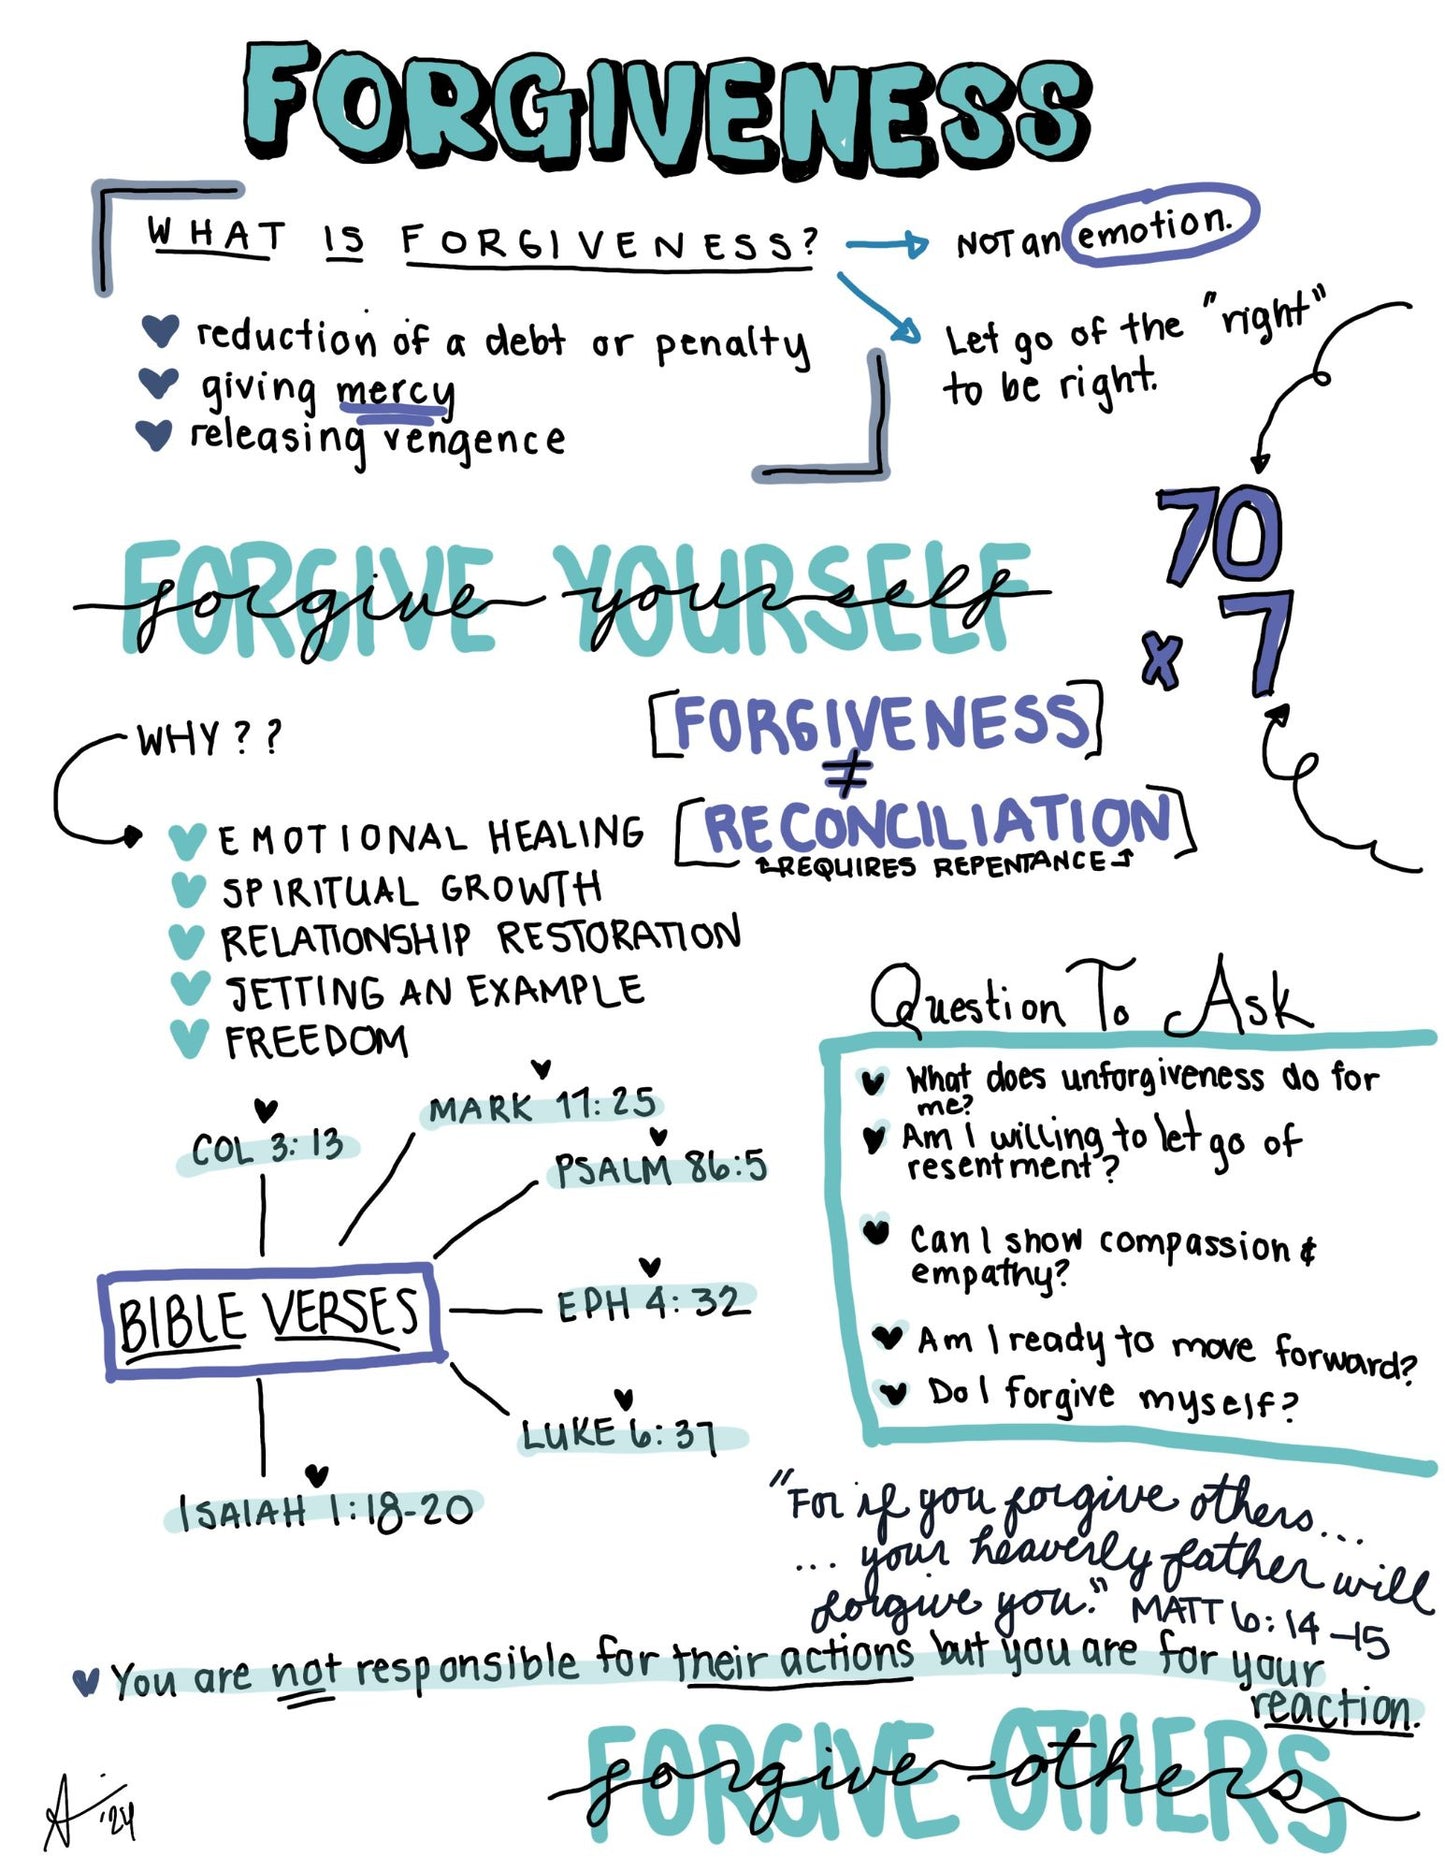 FORGIVENESS
WHAT IS FORGIVENESS?
NOT an emotion.
Let go of the "right"
to be right.
reduction of a debt or penalty
giving mercy
releasing vengence
70
x 7
FORGIVE YOURSELF
forgive yourself
[FORGIVENESS]
≠
[RECONCILIATION]
REQUIRES REPENTANCE
WHY??
EMOTIONAL HEALING
SPIRITUAL GROWTH
RELATIONSHIP RESTORATION
SETTING AN EXAMPLE
FREEDOM
Question To Ask
What does unforgiveness do for
me?
Am I willing to let go of
resentment?
Can I show compassion &
empathy?
Am I ready to move forward?
Do I forgive myself?
BIBLE VERSES
COL 3:13
MARK 11:25
PSALM 86:5
EPH 4:32
LUKE 6:37
ISAIAH 1:18-20
"For if you forgive others...
... your heavenly father will
forgive you." MATT 6:14-15
You are not responsible for their actions but you are for your
reaction.
FORGIVE OTHERS
forgive others
'24